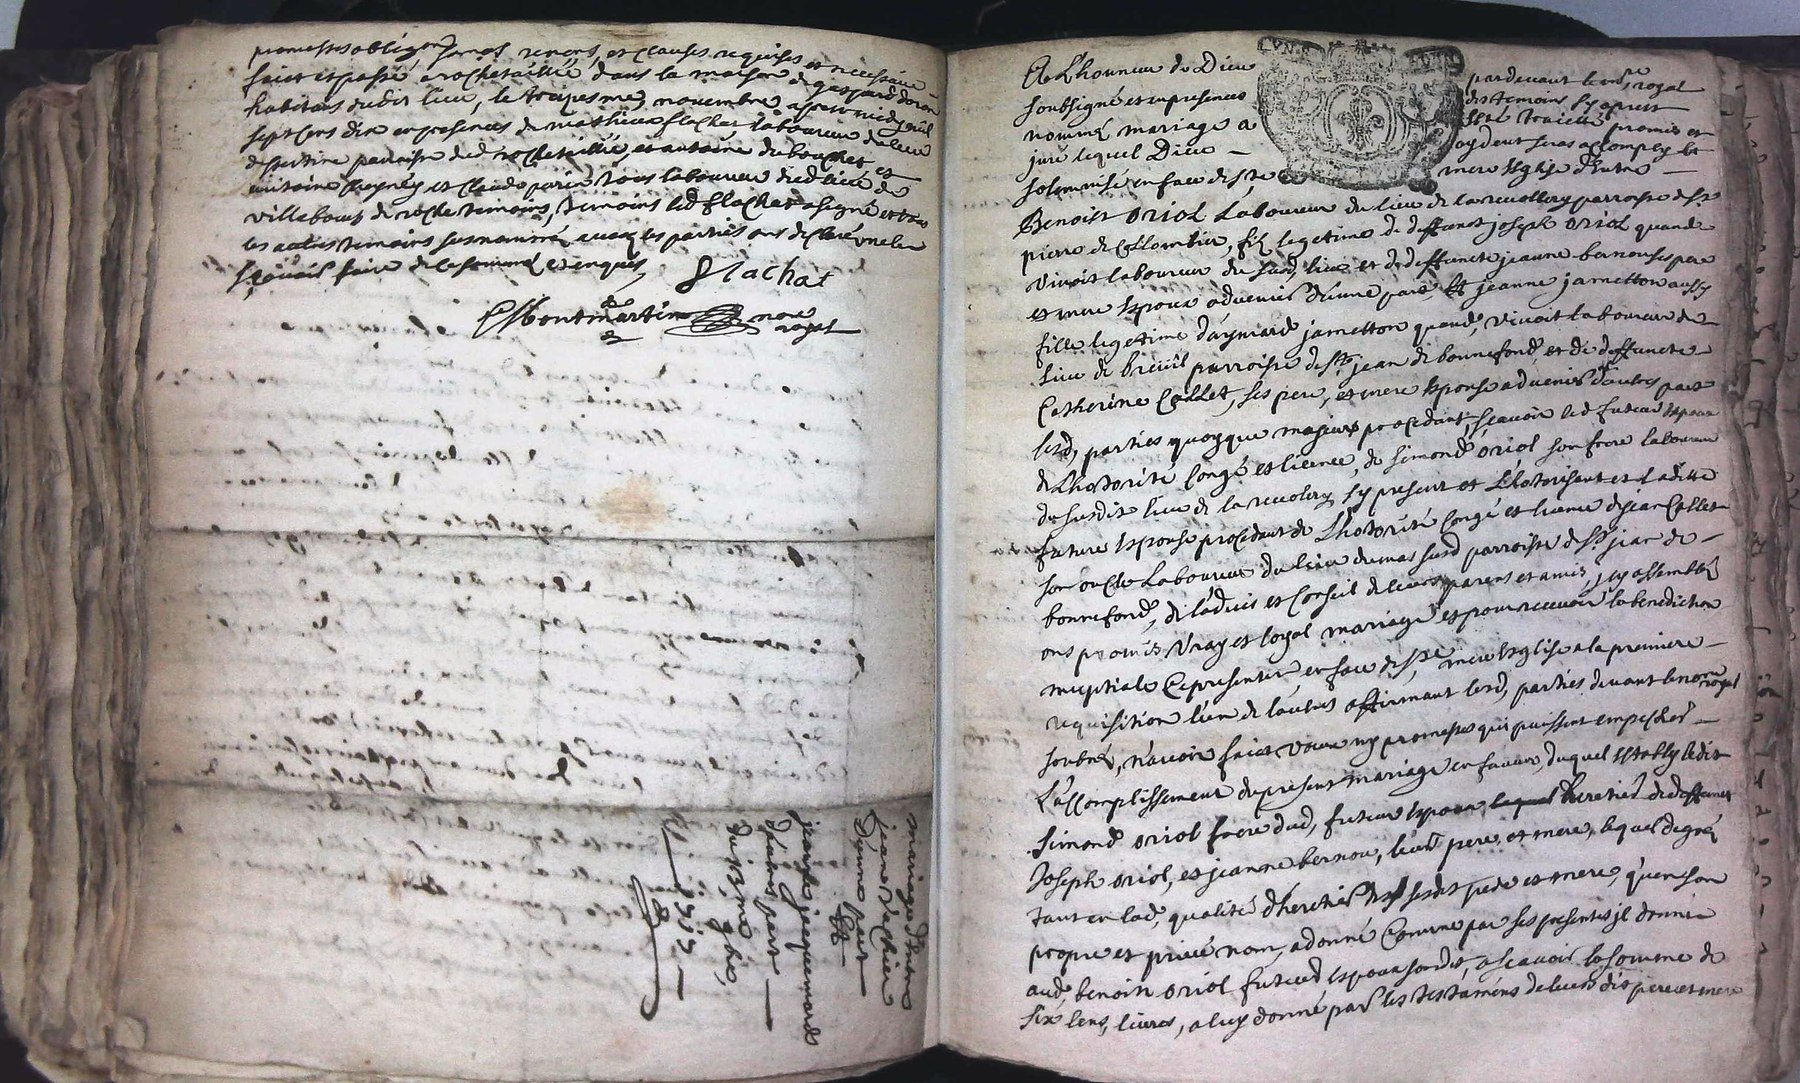 promesses obligaõns serment renons, et clauses requises et necessaires
faict et passé a rochetaillée dans la maison de gaspard doron
habitans dudit lieu, le treiziesme novembre apres midy mil
sept cens dix en presences de mathieu flachat laboureur du lieu
parroisse dud rochetaillée, et antoine dubouchet
antoine et Claude tous laboureur dud lieu de
villebœuf de roche temoins, led flachat a signé et non
les autres temoins susnommés avec les parties ont declaré ne le
sçavoir faire de ce sommé et enquis,
Flachat
Montmartin nore
royal
mariage d'entre
jean vachier
d'une part
Et
jeanne jacquemard
d'autre part
du
1712
A L'honneur de Dieu pardevant le nore royal
soubsigné et en presences des temoins cy apres
nommé mariage a esté traicté promis et
juré lequel Dieu aydant sera accomply et
solemnisé en face de ste mere Esglise d'entre
Benoist oriol Laboureur du lieu de la revollery parroisse de st
pierre de Collombier, filz legetime de deffunct joseph oriol quand
vivoit laboureur du susd, lieu et de deffuncte jeanne bernou ses pere
et mere Espoux advenir d'une part Et jeanne jametton aussy
fille legetime d'aymard jametton quand, vivoit laboureur du
lieu de breüil parroisse de st, jean de bonnefond, et de deffuncte
Catherine Collet, ses pere, et mere Espouse advenir d'autre part
lesd, parties quoyque majeurs procedant, sçavoir led futeur Espoux
de L'hotorité Congé et licence, de simond oriol son frere laboureur
du susdit lieu de la revolery cy present et L'hotorisant et ladite
future Espouse procedant de L'hotorité Congé et licence de jean Collet
son oncle Laboureur du lieu du mas susd parroisse de st, jean de
bonnefond, de l'advis et Conseil de leurs parens et amis, jcy assemblés
ont promis vray et loyal mariage et pour recevoir la benediction
nuptiale Ce presenter en face de ste mere Esglise a la premiere
requisition l'un de l'autre affirmant lesd, parties devant le nore royal
soubné, n'avoir faict vœux ny promesse qui puissent empecher
L'accomplissement du present mariage en faveur, duquel Establÿ ledit
simond oriol frere dud, futeur Espoux heretier de deffunct
Joseph oriol, et jeanne bernou, leurs pere et mere, lequel de gré
tant en lad, qualité d'heretier de sesdit pere et mere, qu'en son
propre et privé nom, a donné Comme par ses presentes jl donne
aud, benoist oriol futeur Espoux susdit, a sçavoir la somme de
six Cens, livres, a luy donné par les testamens de leurs dis pere et mere